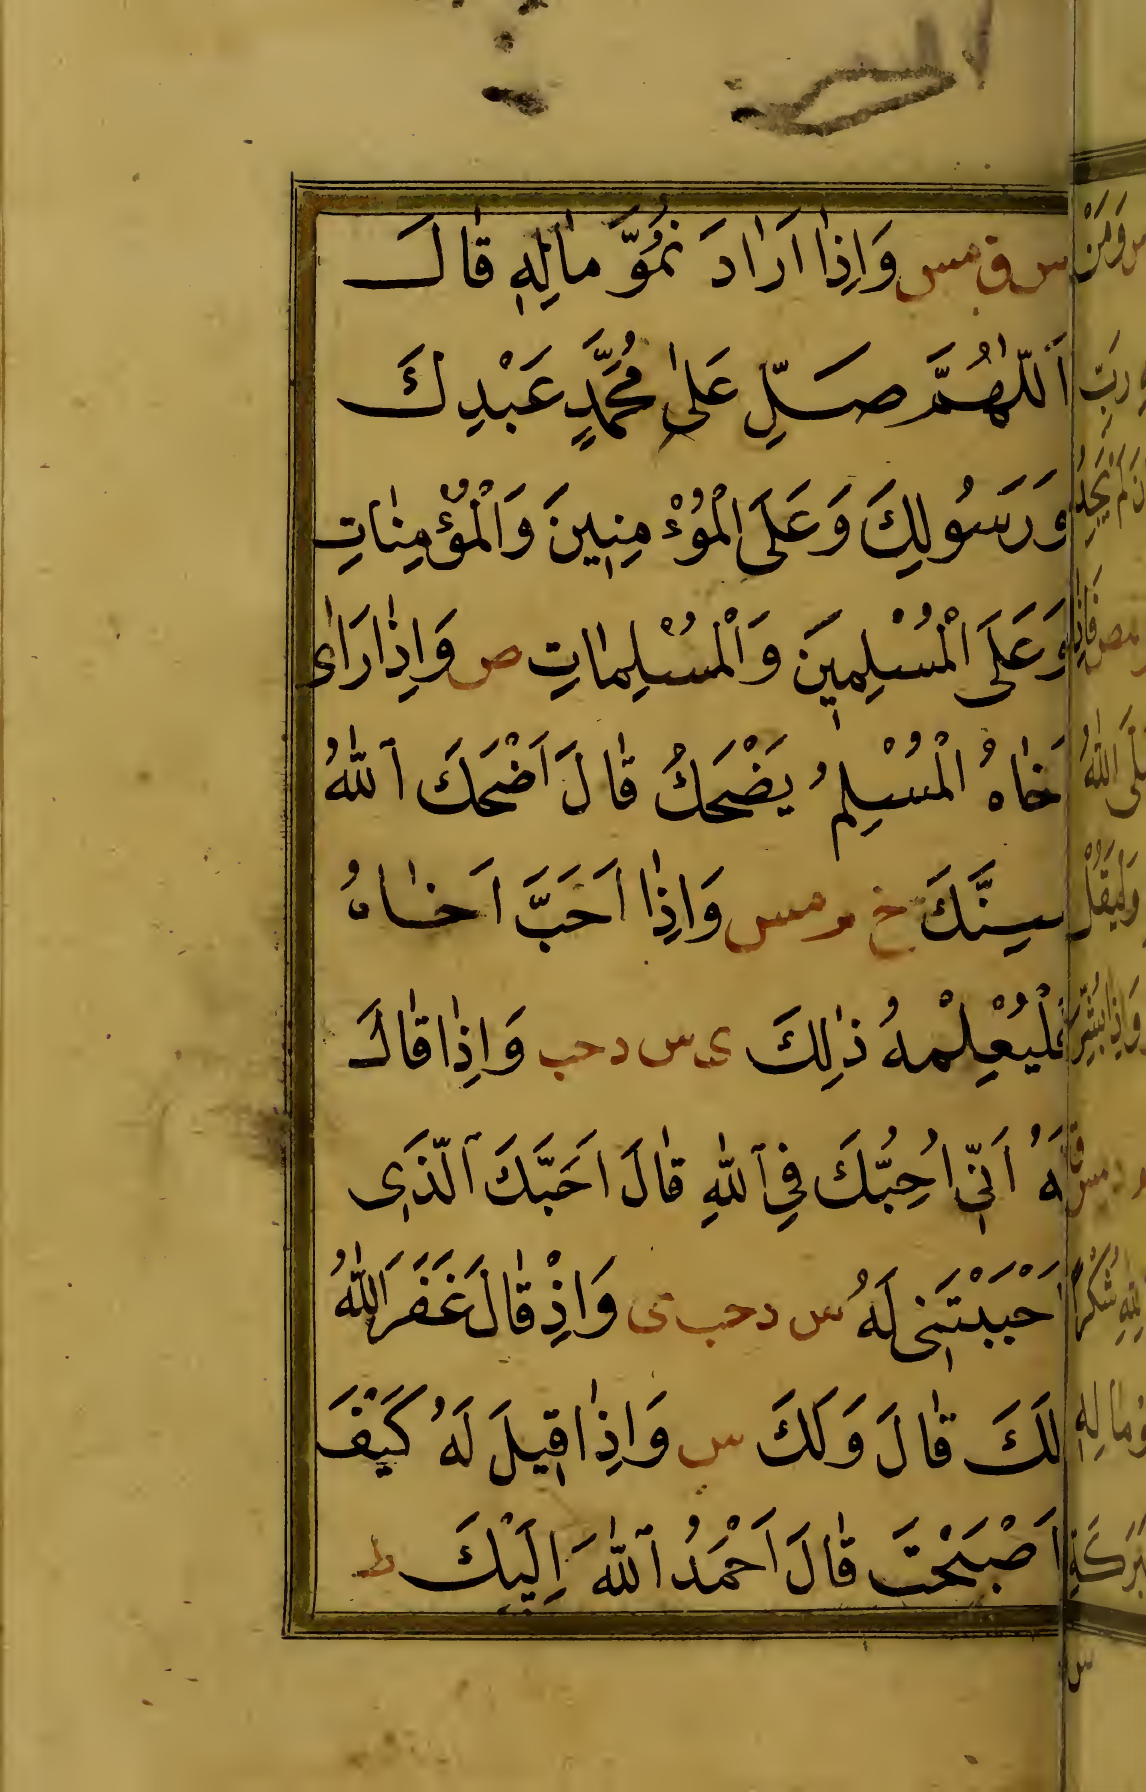 س ق مس وَاِذٰا اَرٰادَ نُمُوَّ مٰالِهٖ قٰالَ
اَللّٰهُمَّ صَلِّ عَلىٰ مُحَمَّدٍ عَبْدِكَ
وَرَسُولِكَ وَعَلَى الْمُؤْمِنٖينَ وَالْمُؤْمِنٰاتِ
وَعَلَى الْمُسْلِمٖينَ وَالْمُسْلِمٰاتِ ص وَاِذٰا رَاٰى
اَخٰاهُ الْمُسْلِمُ يَضْحَكُ قٰالَ اَضْحَكَ اللّٰهُ
سِنَّكَ خ م مس وَاِذٰا اَحَبَّ اَخٰاهُ
فَلْيُعْلِمْهُ ذٰلِكَ ى س د حب وَاِذٰا قٰالَ
لَهُ اَنّٖى اُحِبُّكَ فِى اللّٰهِ قٰالَ اَحَبَّكَ الَّذٖى
اَحْبَبْتَنٖى لَهُ س د حب ى وَاِذْ قٰالَ غَفَرَ اللّٰهُ
لَكَ قٰالَ وَلَكَ س وَاِذٰا قٖيلَ لَهُ كَيْفَ
اَصْبَحْتَ قٰالَ اَحْمَدُ اللّٰهَ اِلَيْكَ ط